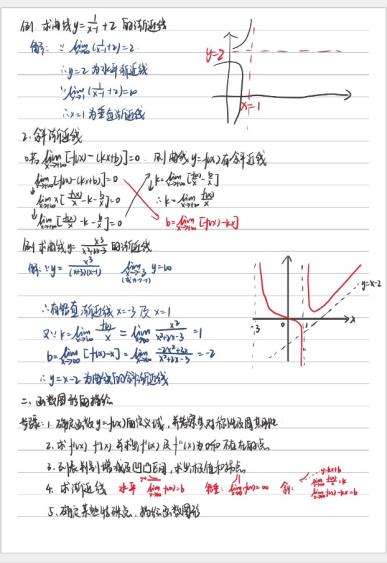 例. 求曲线y=1/(x-1)+2的渐近线
解: ∵ lim(x→∞)(1/(x-1)+2)=2.
∴y=2为水平渐近线
∵ lim(x→1)(1/(x-1)+2)=∞
∴x=1为垂直渐近线
y=2
x=1
2.斜渐近线
若 lim(x→∞)[f(x)-(kx+b)]=0 则曲线y=f(x)有斜渐近线
lim(x→∞)[f(x)-(kx+b)]=0
lim(x→∞)x[f(x)/x-k-b/x]=0
lim(x→∞)[f(x)/x-k-b/x]=0
k=lim(x→∞)[f(x)/x-b/x]
∴k=lim(x→∞)f(x)/x
b=lim(x→∞)[f(x)-kx]
例.求曲线y=x³/(x²+2x-3)的渐近线
解: y=x³/((x+3)(x-1)) lim(x→-3)(或x→1) y=∞
∴有铅直渐近线x=-3及x=1
又∵k=lim(x→∞)f(x)/x=lim(x→∞)x²/(x²+2x-3)=1
b=lim(x→∞)[f(x)-x]=lim(x→∞)(-2x²+3x)/(x²+2x-3)=-2
∴y=x-2为曲线的斜渐近线
y=x-2
-3 0 1 x
二、函数图形的描绘
步骤: 1.确定函数y=f(x)的定义域,并考察其对称性及周期性
2.求f'(x) f''(x)并求出f'(x)及f''(x)为0和不存在的点
3.列表判别增减及凹凸区间,求出极值和拐点
4.求渐近线 水平 lim(x→∞)f(x)=b 铅垂: lim f(x)=∞ 斜: y=kx+b lim(x→∞)f(x)/x=k lim(x→∞)f(x)-kx=b
5.确定某些特殊点,描绘函数图形